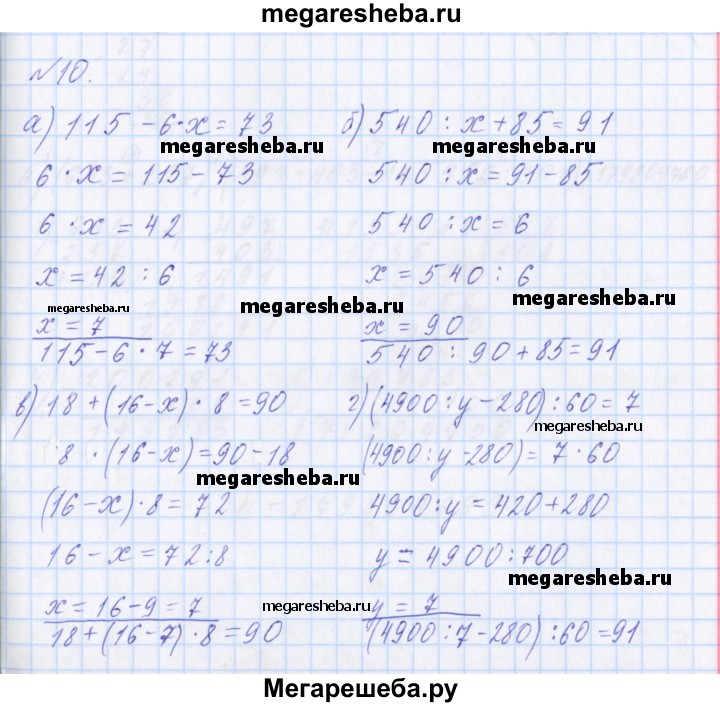 megaresheba.ru
№10.
а) 115 - 6·x = 73
б) 540 : x + 85 = 91
megaresheba.ru
megaresheba.ru
6·x = 115 - 73
540 : x = 91 - 85
6·x = 42
540 : x = 6
x = 42 : 6
x = 540 : 6
megaresheba.ru
megaresheba.ru
megaresheba.ru
x = 7
x = 90
115 - 6·7 = 73
540 : 90 + 85 = 91
в) 18 + (16 - x)·8 = 90
г) (4900 : y - 280) : 60 = 7
megaresheba.ru
8·(16 - x) = 90 - 18
(4900 : y - 280) = 7·60
megaresheba.ru
(16 - x)·8 = 72
4900 : y = 420 + 280
16 - x = 72 : 8
y = 4900 : 700
megaresheba.ru
x = 16 - 9 = 7
megaresheba.ru
y = 7
18 + (16 - 7)·8 = 90
(4900 : 7 - 280) : 60 = 91
Мегарешеба.ру